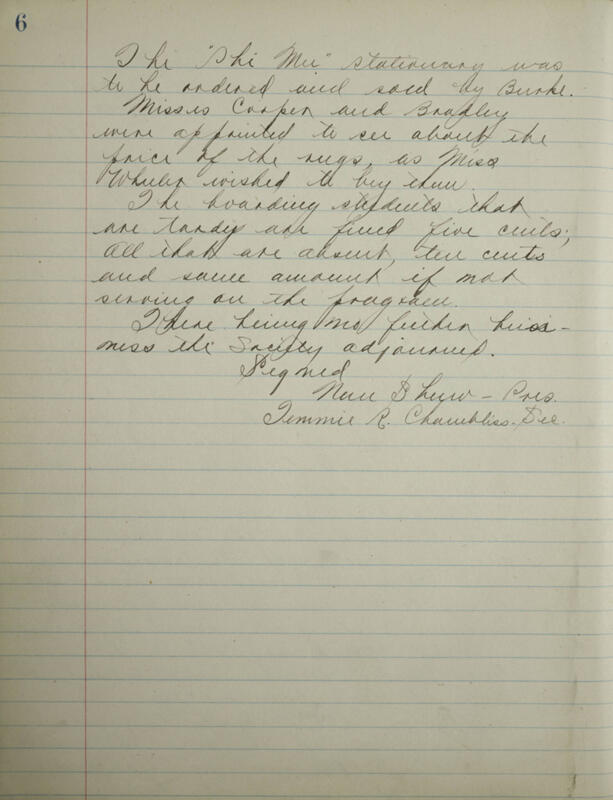 6
The "Phi Mu" stationary was
to be ordered and sold by Burke.
Misses Cooper and Bradley
were appointed to see about the
price of the rugs, as Miss
Wheeler wished to buy them.
The boarding students that
are tardy are fined five cents;
all that are absent, ten cents
and same amount if not
serving on the program.
There being no further busi-
ness the Society adjourned.
Signed
Pres.
Temmie R. Chambliss. Sec.